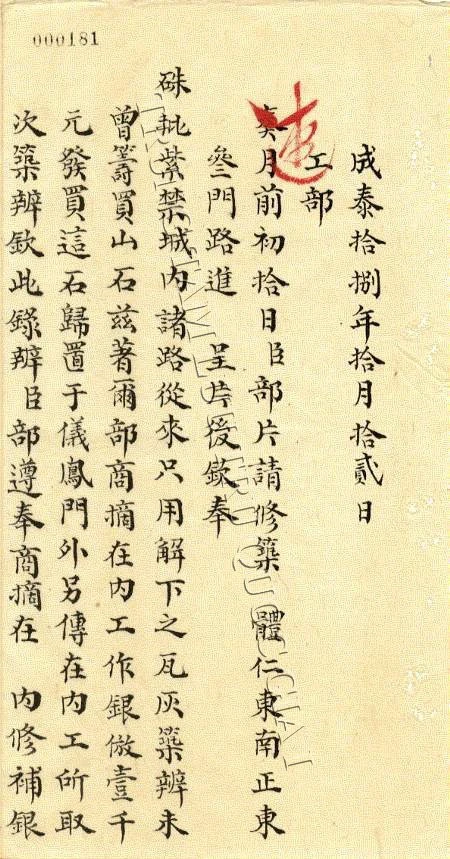 000181
成泰拾捌年拾月拾貳日
工部
奏月前初拾日臣部片請修築體仁東南正東
叄門路進 呈片後欽奉
硃批紫禁城內諸路從來只用解下之瓦灰築辨未
曾籌買山石茲著爾部商摘在內工作銀倣壹千
元發買這石歸置于儀鳳門外另傳在內工所取
次築辨欽此錄辨臣部遵奉商摘在 內修補銀